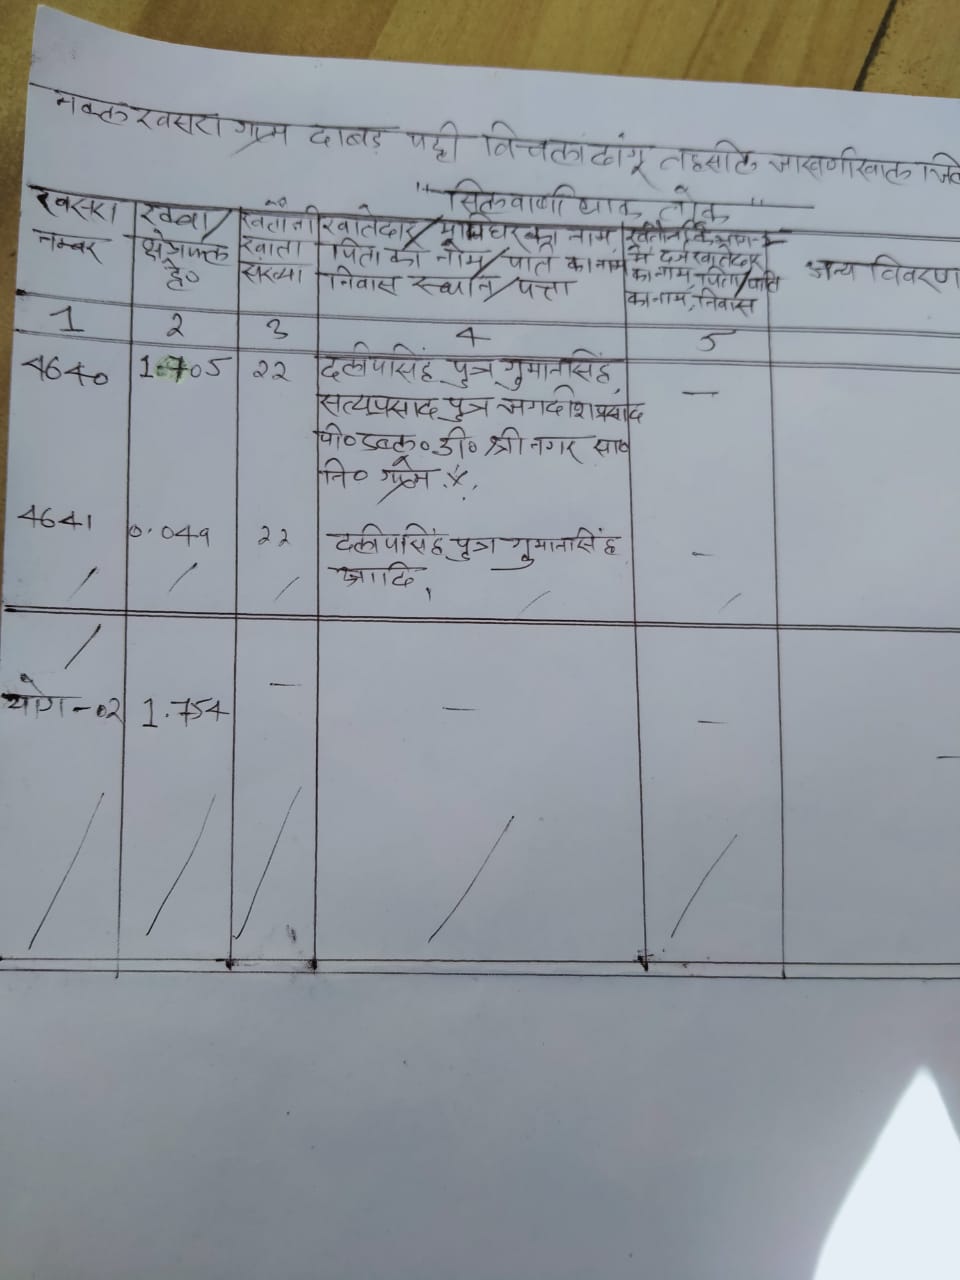 नकल खसरा ग्राम दाबड़ पट्टी बिचला ढांगू तहसील जाखणीखाल जिला
"सिलवाणी धार तोक"
खसरा नम्बर
रकबा/ क्षेत्रफल है०
खतौनी खाता संख्या
खातेदार/भूमिधर का नाम,
पिता का नाम/पति का नाम
निवास स्थान/पत्ता
खतौनी के श्रेणी-
में दर्ज खातेदार
का नाम, पिता/पति
का नाम, निवास
अन्य विवरण
1 2 3 4 5
4640 1.705 22 दलीपसिंह पुत्र गुमानसिंह,
सत्यप्रसाद पुत्र जगदीशप्रसाद
पी०डब्लू०डी० श्रीनगर सा०
नि० ग्राम
4641 0.049 22 दलीपसिंह पुत्र गुमानसिंह –
आदि,
योग-02 1.754 – – –